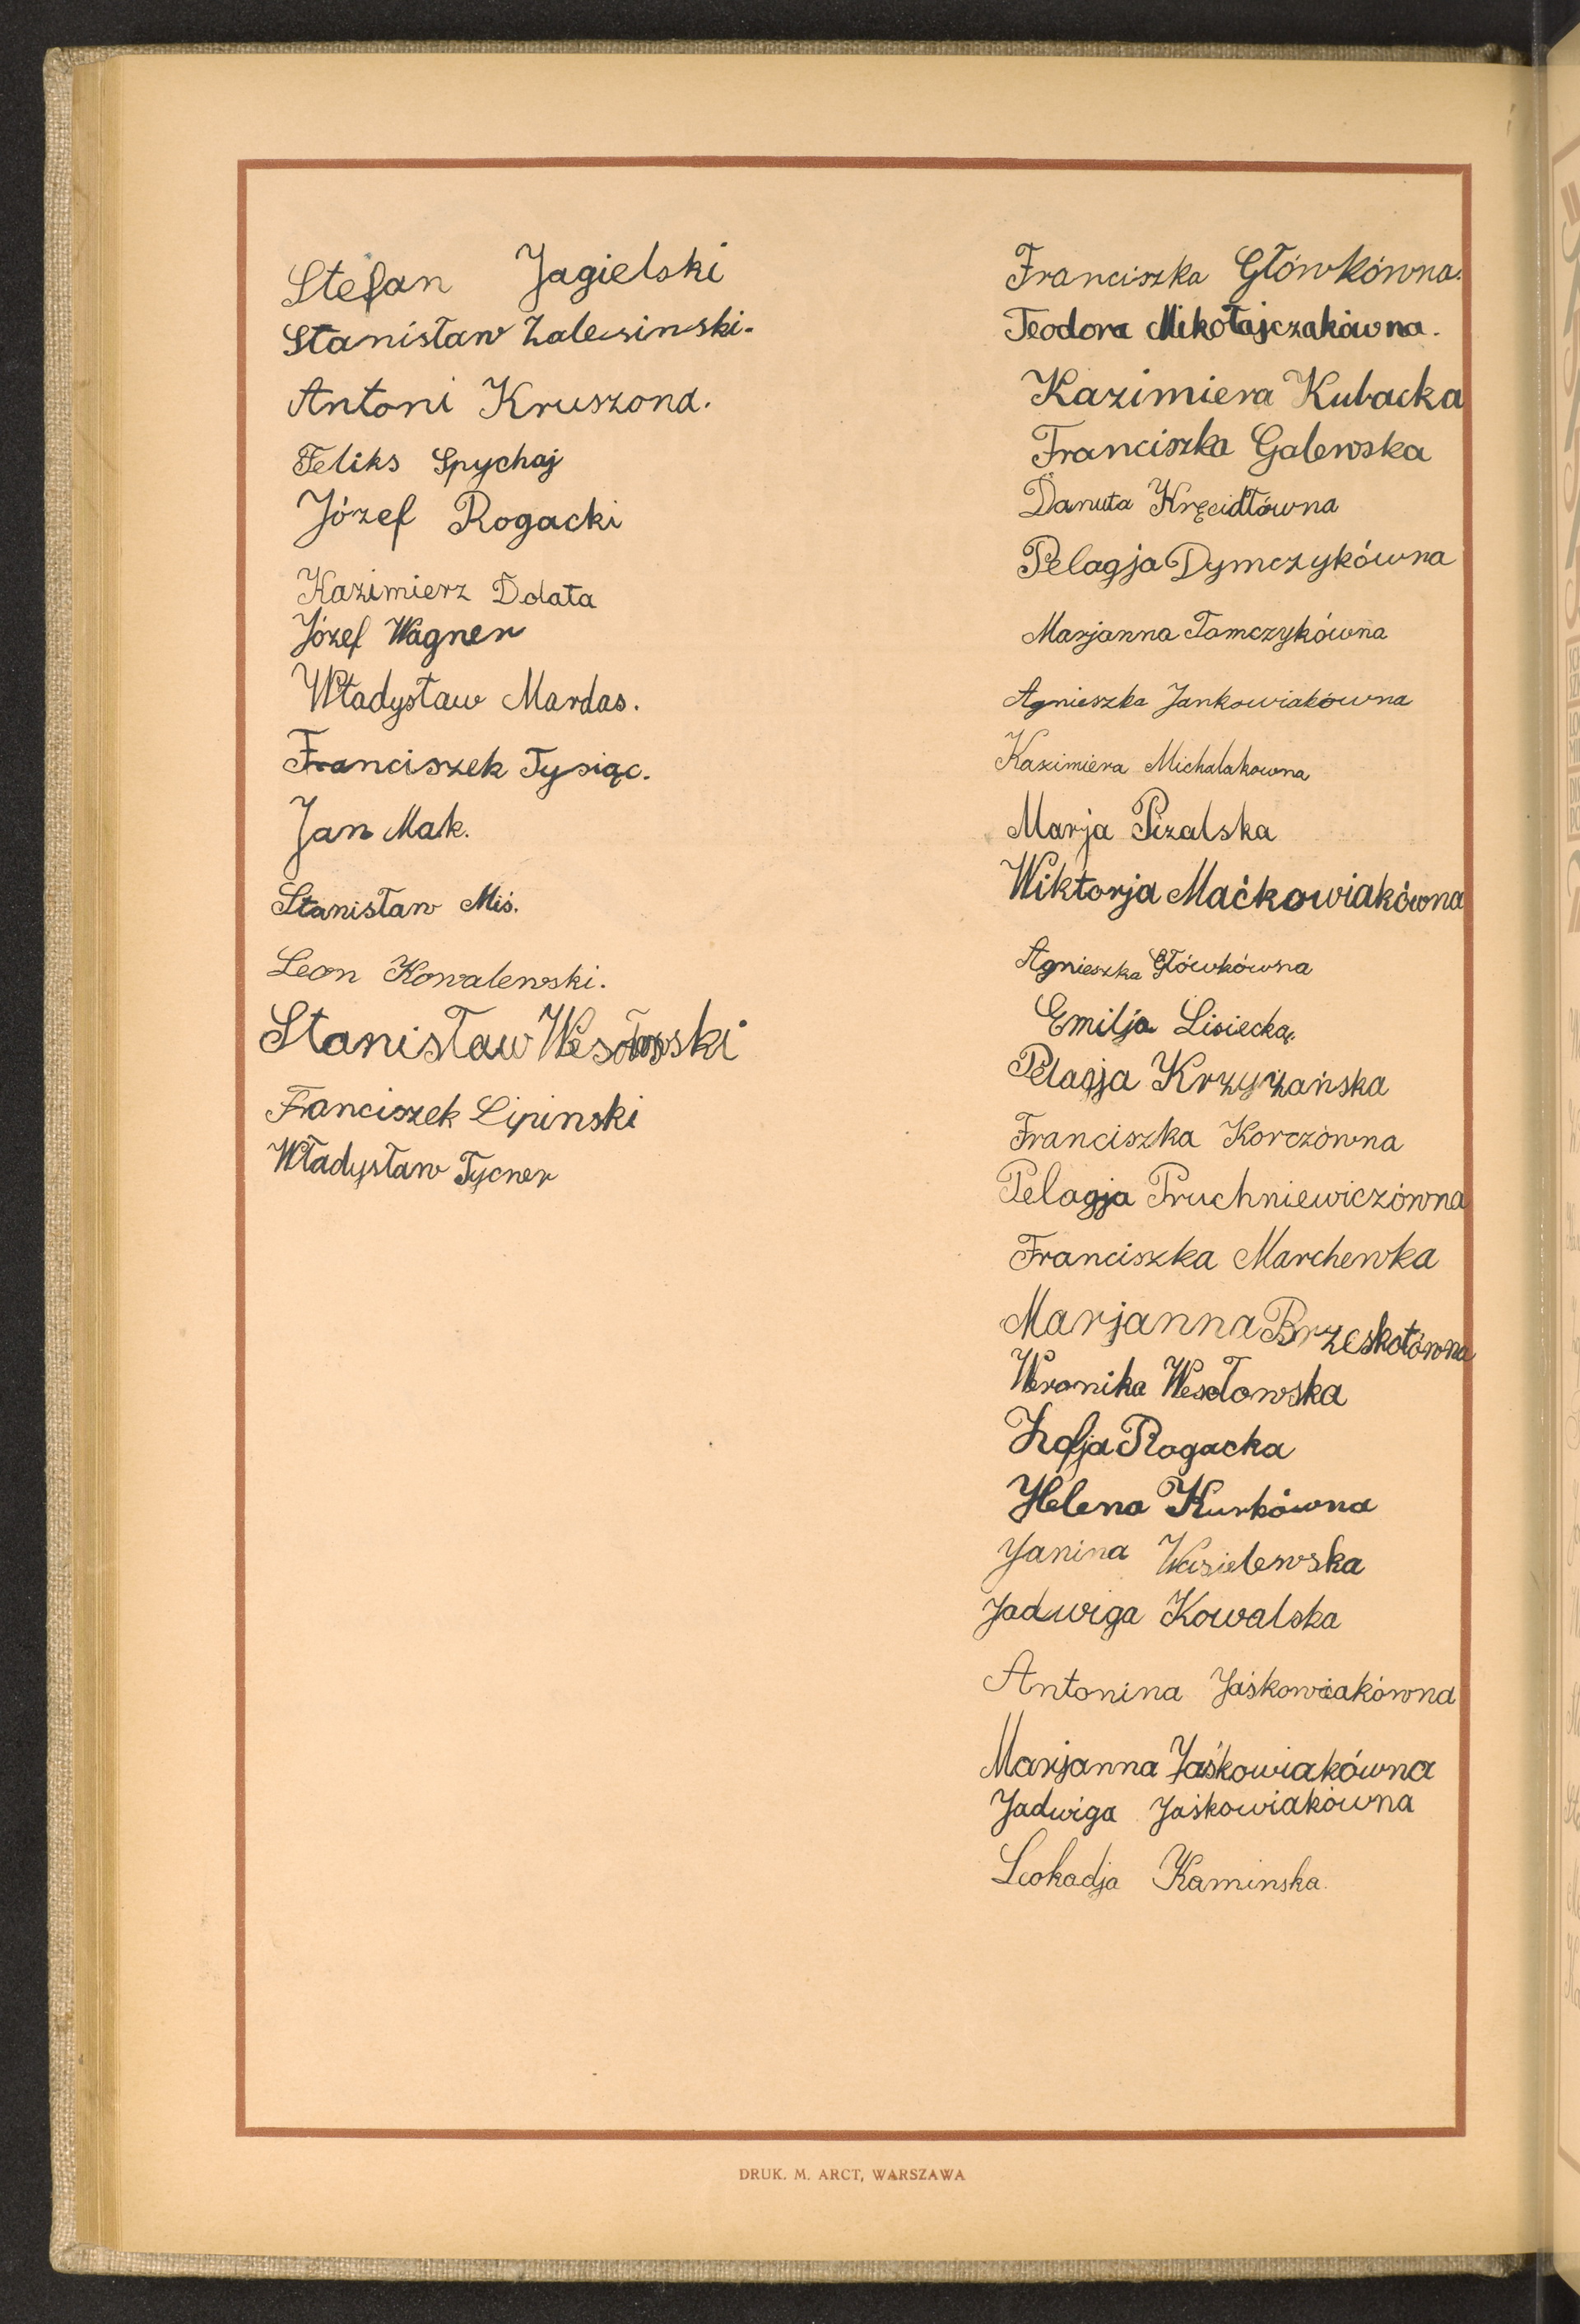 Stefan Jagielski
Stanisław Zalesinski.
Antoni Kruszona.
Feliks Spychaj
Józef Rogacki
Kazimierz Dolata
Józef Wagner
Władysław Mardas.
Franciszek Tysiąc.
Jan Mak.
Stanisław Miś.
Leon Kowalewski.
Stanisław Wesołowski
Franciszek Lipinski
Władysław Tycner
Franciszka Główkówna.
Teodora Mikołajczakówna.
Kazimiera Kubacka
Franciszka Galewska
Danuta Kręcidłówna
Pelagja Dymczykówna
Marjanna Tomczykówna
Agnieszka Jankowiakówna
Kazimiera Michalakowna
Marja Pizalska
Wiktorja Maćkowiakówna
Agnieszka Główkówna
Emilja Lisiecka
Pelagja Krzyżańska
Franciszka Korczówna
Pelagja Pruchniewiczówna
Franciszka Marchewka
Marjanna Brzeskotówna
Weronika Wesołowska
Zofja Rogacka
Helena Kurkówna
Janina Wasielewska
Jadwiga Kowalska
Antonina Jaśkowiakówna
Marjanna Jaśkowiakówna
Jadwiga Jaśkowiakówna
Leokadja Kaminska.
DRUK. M. ARCT, WARSZAWA